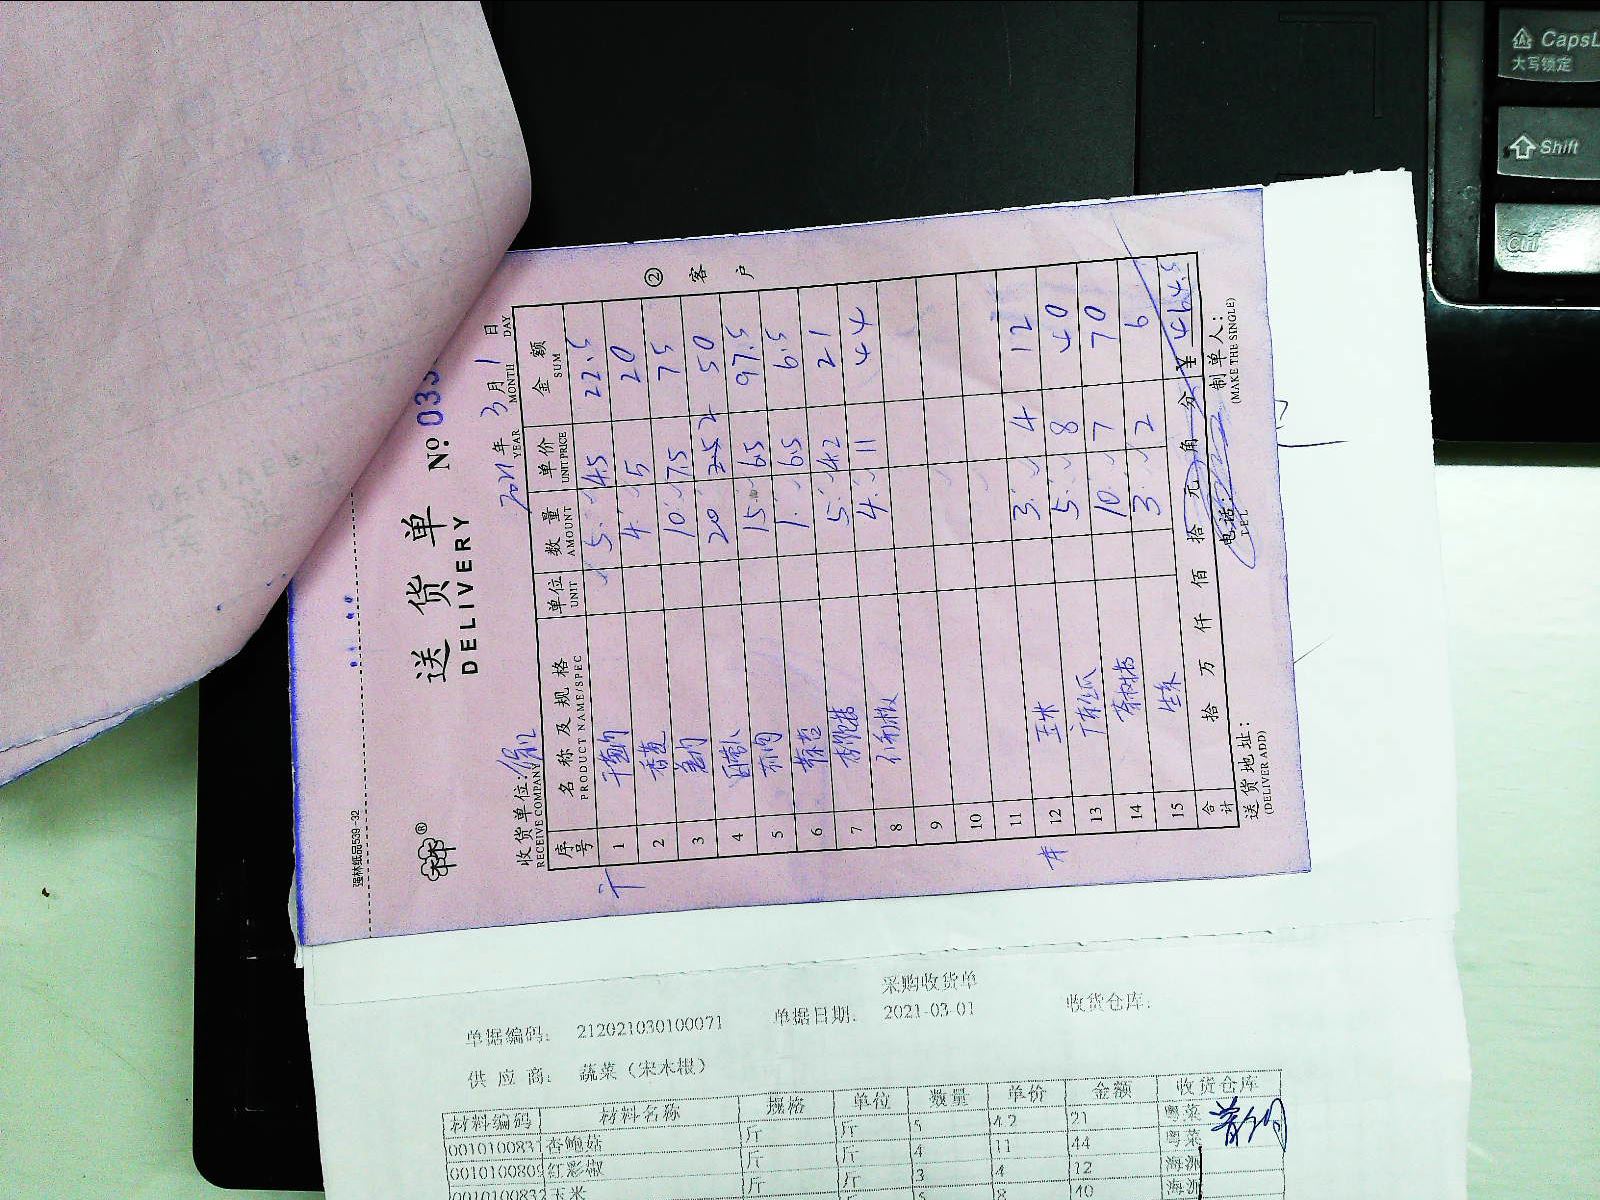 强林纸品539-32
送货单 No. 033
DELIVERY
2021年 3月 1日
YEAR MONTH DAY
收货单位:
RECEIVE COMPANY
序号 名称及规格 单位 数量 单价 金额
PRODUCT NAME/SPEC UNIT AMOUNT UNIT PRICE SUM
1 5 4.5 22.5
2 香葱 4 5 20
3 10 7.5 75
4 20 2 50
5 15 6.5 97.5
6 1 6.5 6.5
7 杏鲍菇 5 4.2 21
8 4 11 44
9
10
11 3 4 12
12 玉米 5 8 40
13 10 7 70
14 茶树菇 3 2 6
15 生菜
合计 拾 万 仟 佰 拾 元 角 分 ¥ 464.5
送货地址: 电话: 制单人:
(DELIVER ADD) TEL (MAKE THE SINGLE)
② 客户
采购收货单
单据编码: 212021030100071 单据日期: 2021-03-01 收货仓库:
供应商: 蔬菜（宋木根）
材料编码 材料名称 规格 单位 数量 单价 金额 收货仓库
001010083 杏鲍菇 斤 斤 5 4.2 21 粤菜
0010100809 红彩椒 斤 斤 4 11 44 粤菜
0010100832 玉米 斤 斤 3 4 12 海派
5 8 40 海派
CapsL
大写锁定
Shift
Ctrl